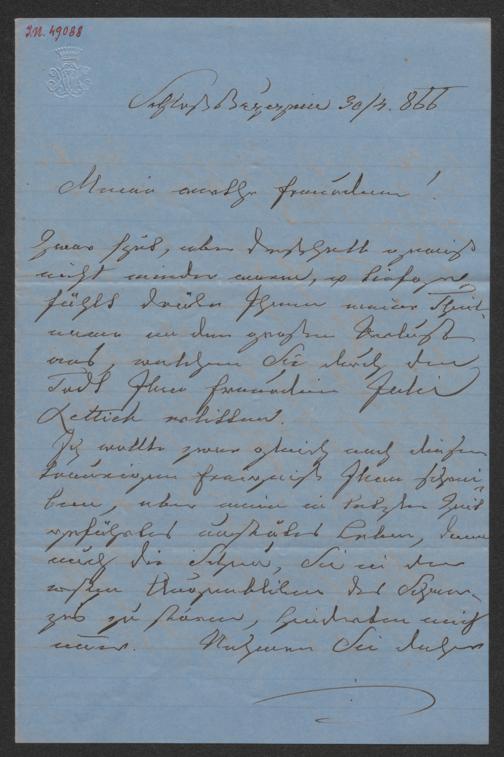 J.N. 49088
Schloß 30/4. 866
Meine werthe Freundinn!
Zwar spät, aber deßhalb gewiß
nicht minder warm, u tiefge-
fühlt drücke Ihnen meine Theil-
nahme an dem großen Verlust
aus, welchen Sie durch den
Todt Ihrer Freundin Julie
Rettich erlitten.
Ich wollte zwar gleich nach diesem
traurigen Ereigniß Ihnen schrei-
ben, aber mein in letzter Zeit
geführtes unstätes Leben, dann
auch die Scheu, Sie in den
ersten Augenblicken des Schmer-
zes zu stören, hinderten mich
daran. Nehmen Sie daher